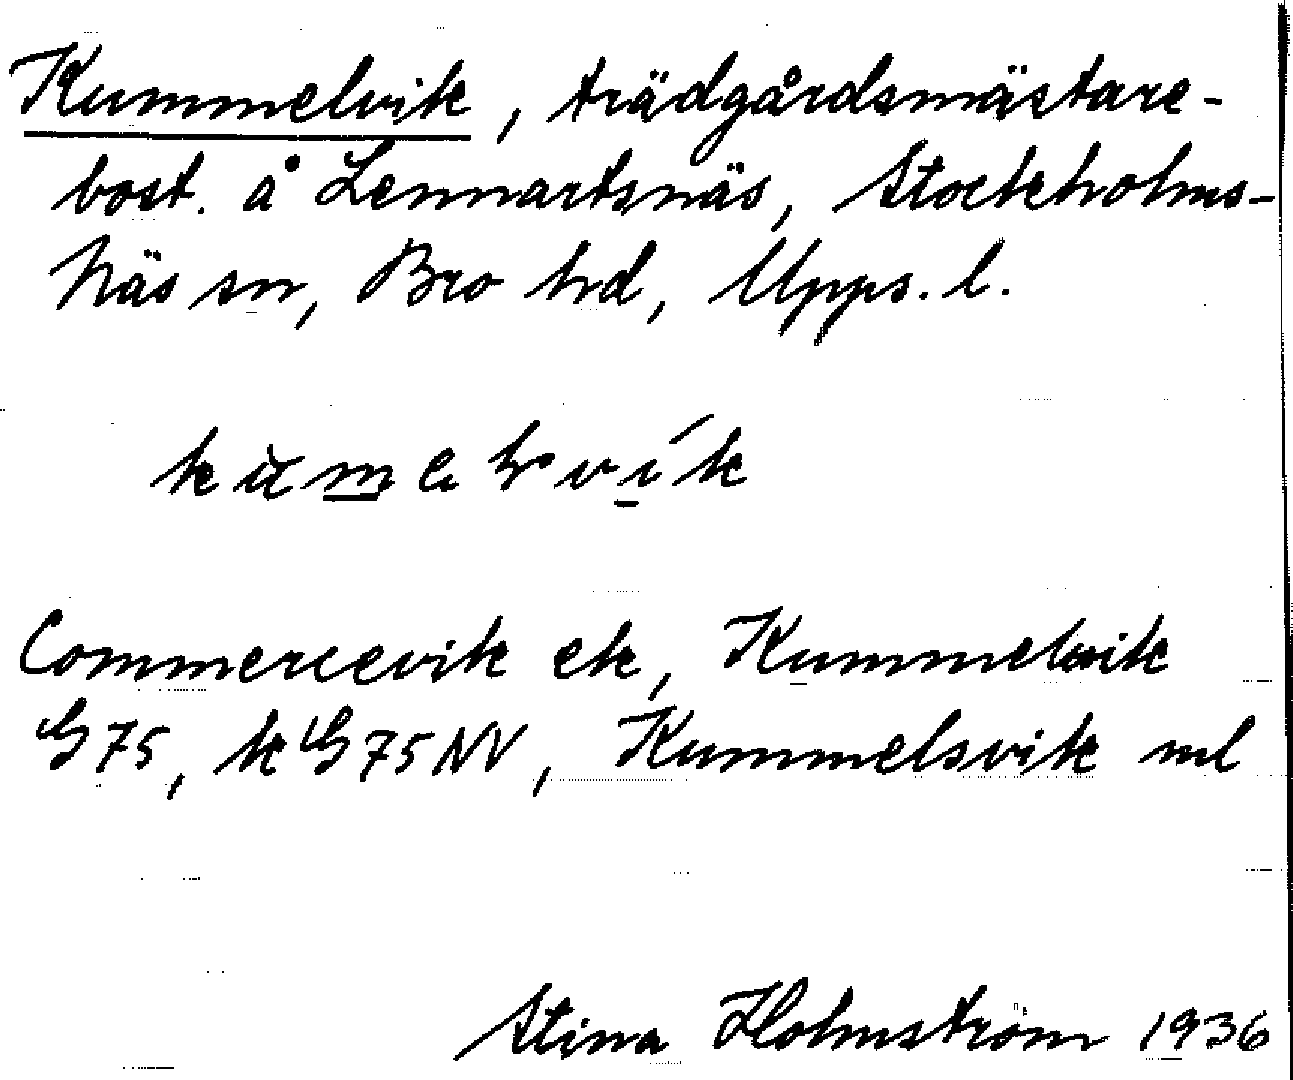 Kummelvik, trädgårdsmästare-
bost. å Lennartsnäs, Stockholms-
Näs sn, Bro hd, Upps. l.
Commercevik ek, Kummelvik
G 75, k G 75 NV, Kummelsvik ml
Stina Holmström 1936